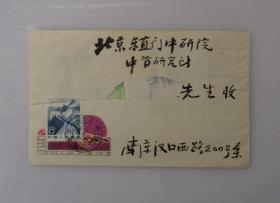 北京东直门中研院
中药研究所
先生收
南京汉口西路200号
8